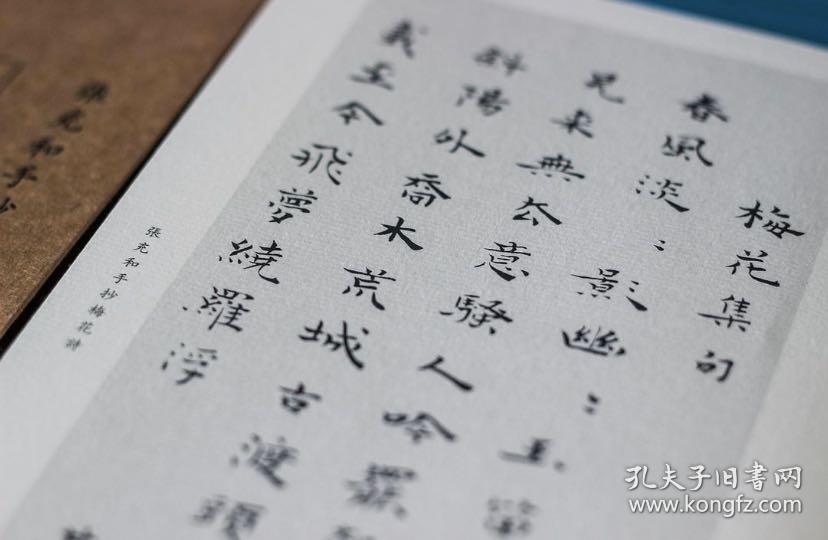 梅花集句
春風淡：影幽：玉笛
来無意騷人吟罷
斜陽外喬木荒城古渡頭
我至今飛夢繞羅浮
張充和手抄梅花詩
張充和手抄
孔夫子旧书网
www.kongfz.com